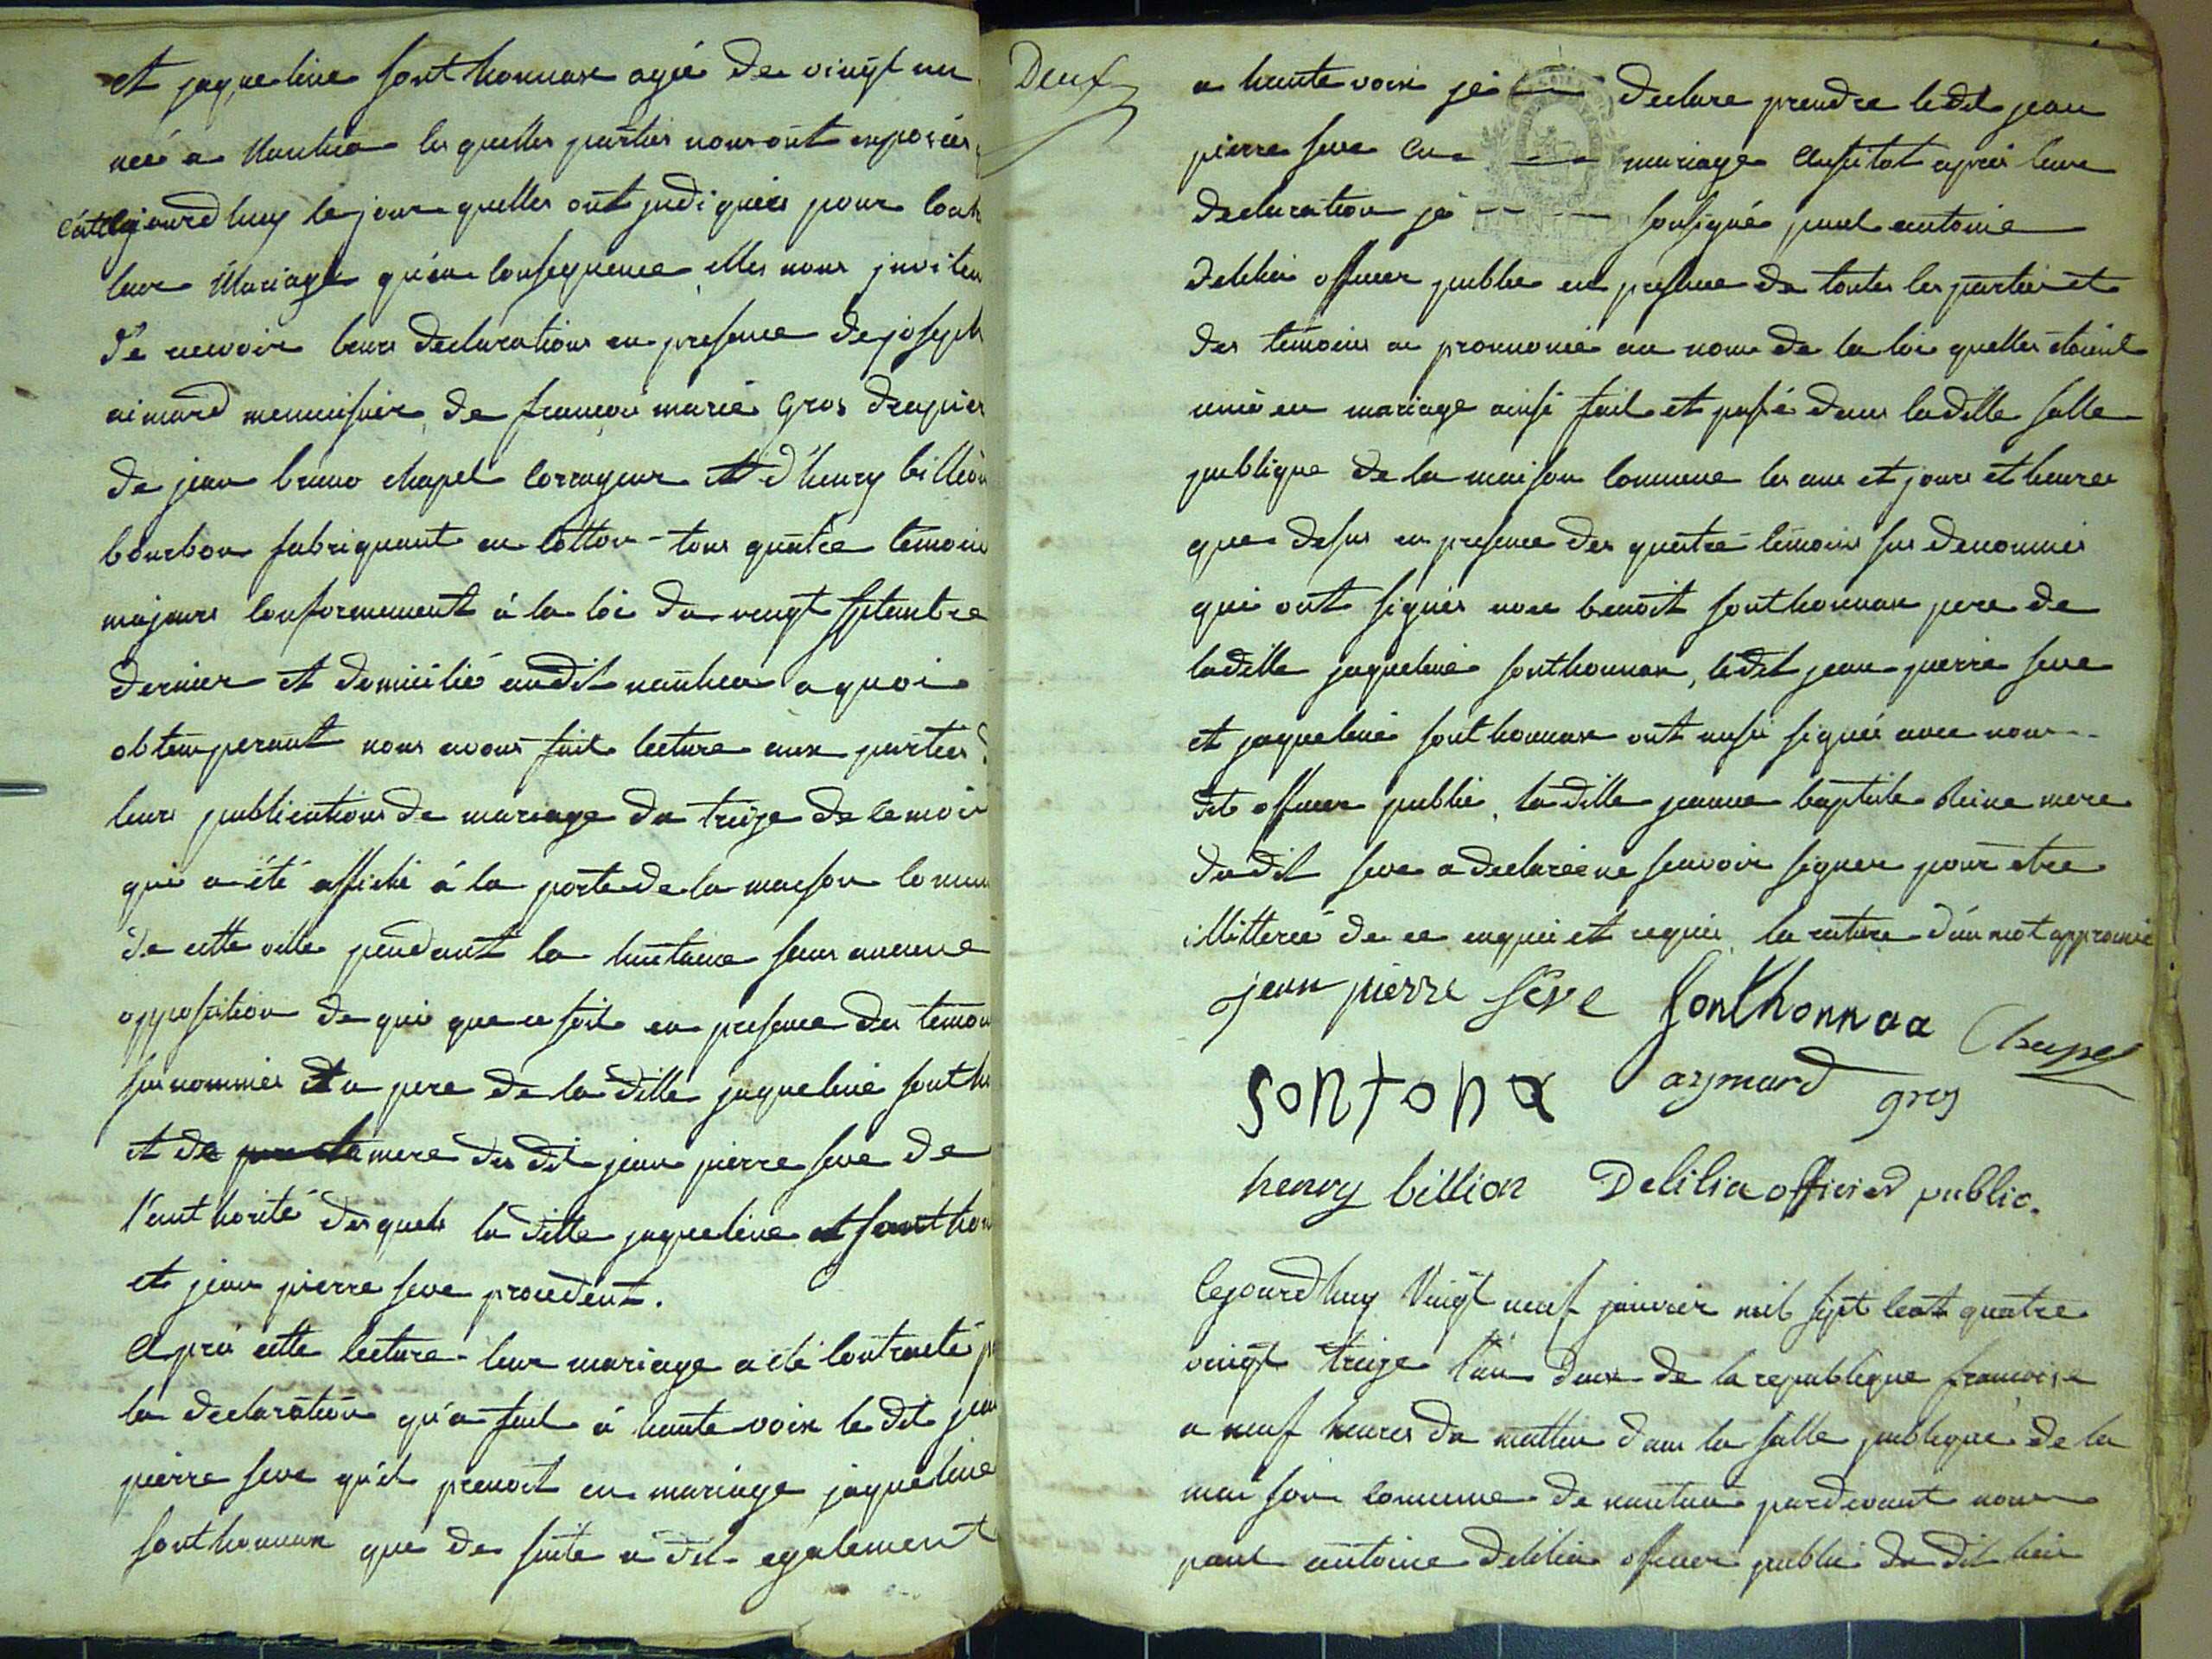 et jaqueline fonthonnax agée de vingt un
née a Nantua les quelles parties nous ont exposées
c'atajourdhuy le jour quelles ont judiquées pour
leur Mariage qu'en consequence elles nous jnvitent
de recevoir leurs declarations en presence de joseph
aimard menuisier, de françois marie gros drapier
de jean bruno chapel corrayeur et d'henry billion
bourbon fabriquant en cotton tous quatre temoins
majeurs conformement á la loi du vingt septembre
dernier et domicilié audit nantua a quoi
obtemperant nous avons fait lecture aux parties d
leurs publications de mariage du treize de ce mois
qui a été affiché á la porte de la maison comun
de cette ville pendant la huitaine sans aucune
opposition de qui que ce soit en presence des temoin
susnommés et du pere de la ditte jaqueline fontho
et de mere du dit jean pierre seve de
l'authorité desquels la ditte jaqueline fonthon
et jean pierre seve procedent.
Apré cette lecture leur mariage a été contracté p
la declaration qu'a fait á haute voix le dit jean
pierre seve qu'il prenoit en mariage jaqueline
fonthonnax que de suite a dit egalement
Deux
a haute voix je declare prendre ledit jean
pierre seve en mariage ausitot apres leur
declaration je sousigné paul antoine
delilia officier public en presence de toutes les parties et
des temoins ai prononcé au nom de la loi quelles étoient
unie en mariage ainsi fait et passé dans laditte salle
publique de la maison comune les an et jour et heures
que desus en presence des quatre temoins sus denommés
qui ont signés avec benoit fonthonnax pere de
laditte jaqueline fonthonnax, ledit jean pierre seve
et jaqueline fonthonnax ont ausi signés avec nous
dit officier public, la ditte jeanne baptiste Reine mere
dudit seve a declarée ne scavoir signer pour etre
illitteré de ce enquis et requis, la rature d'un mot approuvé
jean pierre sève fonthonnax Chapel
sontona aymard gros
henry billion Delilia officier public.
Cejourdhuy Vingt neuf janvier mil sept cent quatre
vingt treize l'an deux de la republique francoise
a neuf heures du mattin dans la salle publique de la
maison comune de nantua pardevant nous
paul antoine delilia officier public du dit lieu